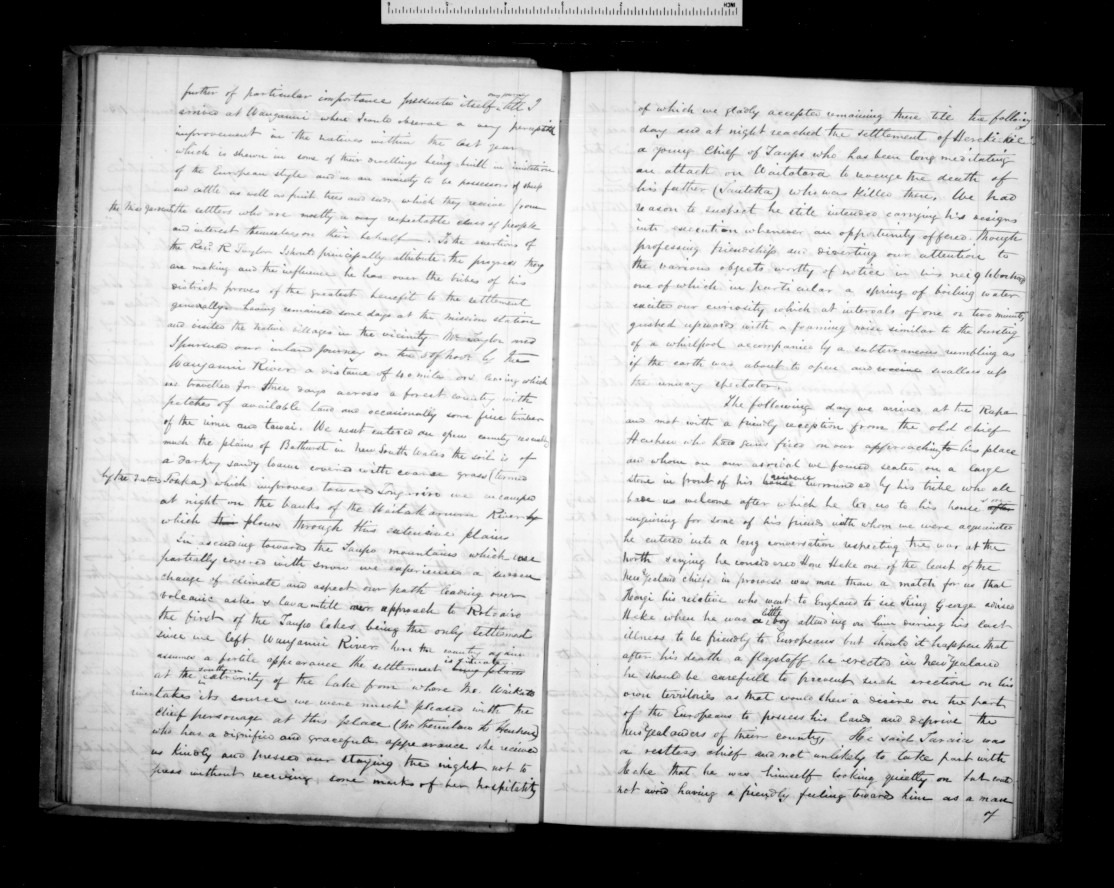 further of particular importance presented itself till I
arrived at Wanganui where I could observe a very perceptible
improvement in the natives within the last year
which is shewn in some of their dwellings being built in imitation
of the European style and in an anxiety to be possessors of sheep
and cattle as well as fruit trees and seeds which they receive from
the settlers who are mostly a very respectable class of people
and interest themselves on their behalf. To the exertions of
the Revd. R Taylor I should principally attribute the progress they
are making and the influence he has over the tribes of his
district proves of the greatest benefit to the settlement
generally. having remained some days at the mission station
and visited the native villages in the vicinity Mr Taylor and
I pursued our inland journey on the of Novr by the
Wanganui River a distance of miles on leaving which
we travelled for three days across a forest country with
patches of available land and occasionally some fine timber
of the rimu and towai. We next entered an open country resembling
much the plains of Bathurst in New South Wales the soil is of
a darky sandy loam covered with coarse grass (termed
by the natives) which improves towards Tongariro we encamped
at night on the banks of the River
which flows through this extensive plains
In ascending towards the Taupo mountains which are
partially covered with snow we experienced a severe
change of climate and aspect our path leading over
volcanic ashes & lava until our approach to Rotoaire
the first of the Taupo lakes being the only settlement
since we left Wanganui River here the country again
assumes a fertile appearance the settlement is situated
at the southern extremity of the lake from whence the Waikato
takes its source we were much pleased with the
chief personage at this place
who has a dignified and graceful appearance she received
us kindly and pressed our staying the night not to
pass without receiving some marks of her hospitality
of which we gladly accepted remaining there till the following
day and at night reached the settlement of Herekiekie
a young Chief of Taupo who has been long meditating
an attack on Waitotara to revenge the death of
his father who was killed there, We had
reason to suspect he still intended carrying his designs
into execution whenever an opportunity offered though
professing friendship and diverting our attention to
the various objects worthy of notice in his neighbourhood
one of which in particular a spring of boiling water
excited our curiosity which at intervals of one or two minutes
gushed upwards with a foaming noise similar to the bursting
of a whirlpool accompanied by a subterraneous rumbling as
if the earth was about to open and swallow up
the unwary spectators.
The following day we arrived at the Rapa
and met with a friendly reception from the old chief
Heuheu who had guns fired on our approaching to his place
and whom on our arrival we found seated on a large
stone in front of his house surrounded by his tribe who all
bade us welcome after which he led us to his house
enquiring for some of his friends with whom we were acquainted
he entered into a long conversation respecting the war at the
North saying he considered Hone Heke one of the least of the
New Zealand chiefs in prowess was more than a match for us that
Hongi his relative who went to England to see King George advised
Heke when he was a little boy attending on him during his last
illness to be friendly to Europeans but should it happen that
after his death a flagstaff be erected in New Zealand
he should be carefull to prevent such erection on his
own territories as that would shew a desire on the part
of the Europeans to possess his land and deprive the
New Zealanders of their country, He said Taraia was
a restless chief and not unlikely to take part with
Heke that he was himself looking quietly on but could
not avoid having a friendly feeling towards him as a man
of